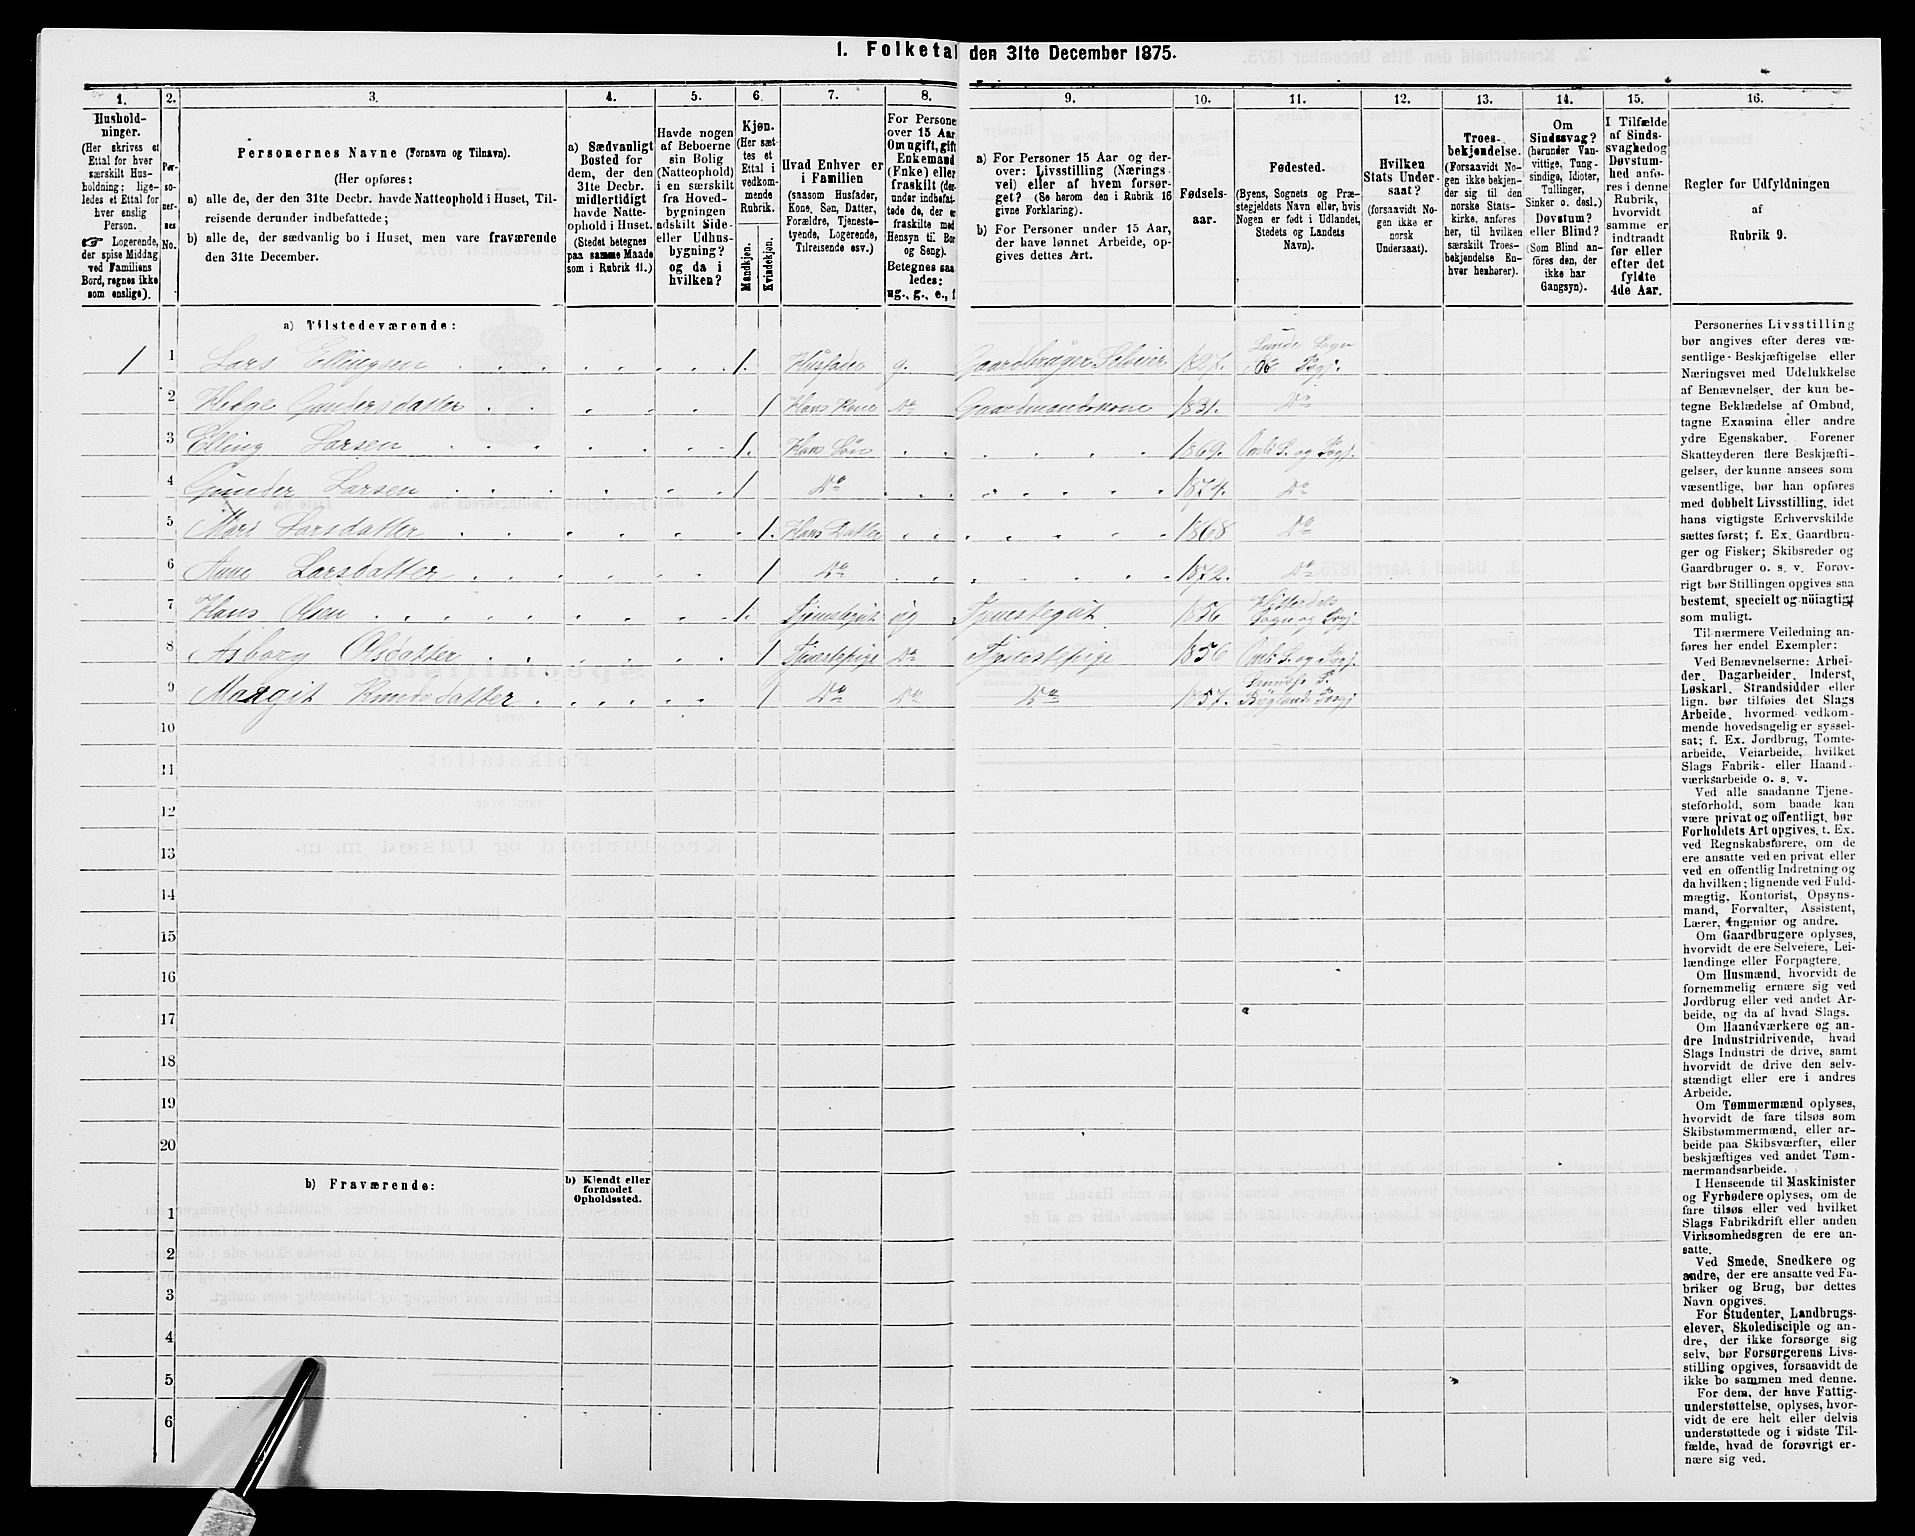 1. Folketal den 31te December 1875.
1.
2.
3.
4.
5.
6.
7.
8.
9.
10.
11.
12.
13.
14.
15.
16.
Hushold-
ninger.
(Her skrives et
Ettal for hver
særskilt Hus-
holdning; lige-
ledes et Ettal for
hver enslig
Person.
Logerende,
der spise Middag
ved Familiens
Bord, regnes ikke
som enslige).
Per-
so-
ner-
nes
No.
Personernes Navne (Fornavn og Tilnavn).
(Her opføres:
a) alle de, der den 31te Decbr. havde Natteophold i Huset, Til-
reisende derunder indbefattede;
b) alle de, der sædvanlig bo i Huset, men vare fraværende
den 31te December.
a) Sædvanligt
Bosted for
dem, der den
31te Decbr.
midlertidigt
havde Natte-
ophold i Huset.
(Stedet betegnes
paa samme Maade
som i Rubrik 11.)
Havde nogen
af Beboerne
sin Bolig
(Natteophold)
i en særskilt
fra Hoved-
bygningen
adskilt Side-
eller Udhus-
bygning?
og da i
hvilken?
Kjøn.
(Her sæt-
tes et
Ettal i
vedkom-
mende
Rubrik.
Mandkjøn.
Kvindekjøn.
Hvad Enhver er
i Familien
(saasom Husfader,
Kone, Søn, Datter,
Forældre, Tjeneste-
tyende, Logerende,
Tilreisende osv.)
For Persone
over 15 Aar
Om ugift, gift
Enkemand
(Enke) eller
fraskilt (der-
under indbefat-
tede de, der er
fraskilte med
Hensyn til Bor
og Seng).
Betegnes saa
ledes:
ug., g., e., f
a) For Personer 15 Aar og der-
over: Livsstilling (Nærings-
vei) eller af hvem forsør-
get? (Se herom den i Rubrik 16
givne Forklaring).
b) For Personer under 15 Aar,
der have lønnet Arbeide, op-
gives dettes Art.
Fødsels-
aar.
Fødested.
(Byens, Sognets og Præ-
stegjeldets Navn eller, hvis
Nogen er født i Udlandet,
Stedets og Landets
Navn).
Hvilken
Stats Under-
saat?
(forsaavidt No-
gen ikke er
norsk
Undersaat).
Troes-
bekjendelse.
(Forsaavidt No-
gen ikke bekjen-
der sig til den
norske Stats-
kirke, anføres
her, til hvilken
særskilt Troes-
bekjendelse En-
hver henhører).
Om
Sindssvag?
(herunder Van-
vittige, Tung-
sindige, Idioter,
Tullinger,
Sinker o. desl.)
Døvstum?
eller Blind?
(Som Blind an-
føres den, der
ikke har
Gangsyn).
I Tilfælde
af Sinds-
svaghed og
Døvstum-
hed anfø-
res i denne
Rubrik,
hvorvidt
samme er
indtraadt
før eller
efter det
fyldte
4de Aar.
Regler for Udfyldningen
af
Rubrik 9.
a) Tilstedeværende:
1 1 Lars Ellingsen 1. Husfader g. Gaardbruger Selveier 1827. Lunde Sogn
Bø Prgj.
2 Helge Gundersdatter 1 Hans Kone Do Gaardmandskone 1831. Do
3 Elling Larsen 1. Hans Søn 1869. Omli S. og Prgj.
4 Gunder Larsen 1 Do 1874. Do
5 Mari Larsdatter 1. Hans Datter 1868 Do
6 Anne Larsdatter 1 Do 1872. Do
7 Hans Olsen 1. Tjenestegut ug Tjenestegut 1856 Hitterdals
Sogn og Prgj.
8 Asborg Olsdatter 1 Tjenestepige Do Tjenestepige 1856 Omli S. og Prgj.
9 Margit Knudsdatter 1 Do Do Do 1857. S.
Byglands Prgj
10
11
12
13
14
15
16
17
18
19
20
b) Fraværende:
b) Kjendt eller
formodet
Opholdssted.
1
2
3
4
5
6
Personernes Livsstilling
bør angives efter deres væ-
sentlige Beskjæftigelse eller
Næringsvei med Udelukkelse
af Benævnelser, der kun be-
tegne Beklædelse af Ombud,
tagne Examina eller andre
ydre Egenskaber. Forener
Skatteyderen flere Beskjæfti-
gelser, der kunne ansees som
væsentlige, bør han opføres
med dobbelt Livsstilling, idet
hans vigtigste Erhvervskilde
sættes først; f. Ex. Gaardbru-
ger og Fisker; Skibsreder og
Gaardbruger o. s. v. Forøv-
rigt bør Stillingen opgives saa
bestemt, specielt og nøiagtigt
som muligt.
Til nærmere Veiledning an-
føres her endel Exempler:
Ved Benævnelserne: Arbei-
der, Dagarbeider, Inderst,
Løskarl, Strandsidder eller
lign. bør tilføies det Slags
Arbeide, hvormed vedkom-
mende hovedsagelig er syssel-
sat; f. Ex. Jordbrug, Tomte-
arbeide, Veiarbeide, hvilket
Slags Fabrik- eller Haand-
værksarbeide o. s. v.
Ved alle saadanne Tjene-
steforhold, som baade kan
være privat og offentligt, bør
Forholdets Art opgives, t. Ex.
ved Regnskabsførere, om de
ere ansatte ved en privat eller
ved en offentlig Indretning og
da hvilken; lignende ved Fuld-
mægtig, Kontorist, Opsyns-
mand, Forvalter, Assistent,
Lærer, Ingeniør og andre.
Om Gaardbrugere oplyses,
hvorvidt de ere Selveiere, Lei-
lændinge eller Forpagtere.
Om Husmænd, hvorvidt de
fornemmelig ernære sig ved
Jordbrug eller ved andet Ar-
beide, og da af hvad Slags.
Om Haandværkere og an-
dre Industridrivende, hvad
Slags Industri de drive, samt
hvorvidt de drive den selv-
stændigt eller ere i andres
Arbeide.
Om Tømmermænd oplyses,
hvorvidt de fare tilsøs som
Skibstømmermænd, eller ar-
beide paa Skibsværfter, eller
beskjæftiges ved andet Tøm-
mermandsarbeide.
I Henseende til Maskinister
og Fyrbødere oplyses, om de
fare tilsøs eller ved hvilket
Slags Fabrikdrift eller anden
Virksomhedsgren de ere an-
satte.
Ved Smede, Snedkere og
andre, der ere ansatte ved Fa-
briker og Brug, bør dettes
Navn opgives.
For Studenter, Landbrugs-
elever, Skoledisciple og an-
dre, der ikke forsørge sig
selv, bør Forsørgerens Livs-
stilling opgives, forsaavidt de
ikke bo sammen med denne.
For dem, der have Fattig-
understøttelse, oplyses, hvor-
vidt de ere helt eller delvis
understøttede og i sidste Til-
fælde, hvad de forøvrigt er-
nære sig ved.